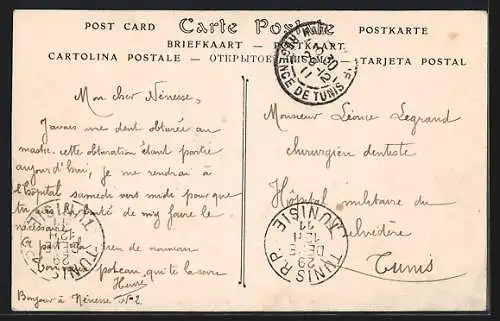 POST CARD Carte Postale POSTKARTE
BRIEFKAART — POSTKAART
CARTOLINA POSTALE — ОТКРЫТОЕ ПИСЬМО — TARJETA POSTAL
REGENCE DE TUNIS
Mon cher Nénesse,
J'avais une dent obturée au
mastic cette obturation étant partie
aujourd'hui, je me rendrai à
l'hôpital samedi vers midi pour que
tu aies la bonté de m'y faire le
nécessaire.
A part cela rien de nouveau
Ton vieux poteau, qui te la serre
Bonjour à Nénesse No 2.
Monsieur Léonce Legrand
chirurgien dentiste
Hôpital militaire du
Belvédère
Tunis
TUNIS R.P.
29
DEC
11
TUNISIE
TUNIS R.P.
29
DEC
11
TUNISIE